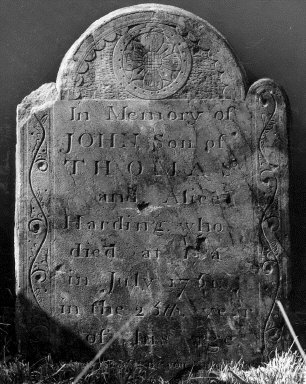 In Memory of
JOHN Son of
THOMAS
and Alice
Harding who
died at Sea
in July
in the 26th year
of his age